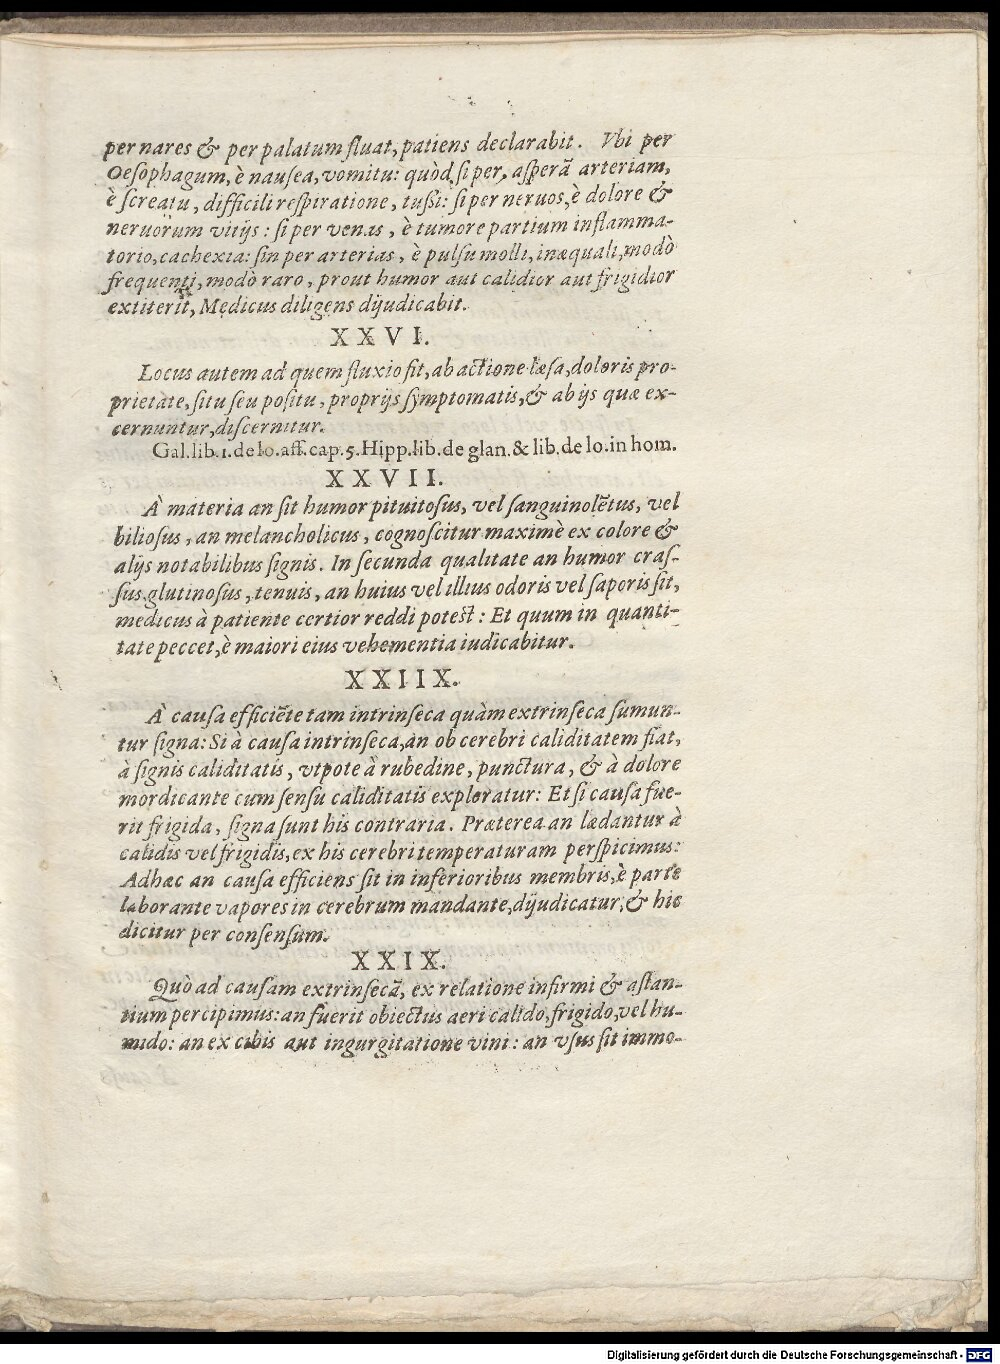 per nares & per palatum fluat, patiens declarabit. Vbi per
Oeſophagum, è nauſea, vomitu: quòd ſi per, aſperā arteriam,
è ſcreatu, difficili reſpiratione, tußi: ſi per neruos, è dolore &
neruorum vitijs: ſi per venas, è tumore partium inflamma-
torio, cachexia: ſin per arterias, è pulſu molli, inæquali, modò
frequenti, modò raro, prout humor aut calidior aut frigidior
extiterit, Medicus diligens dijudicabit.
XXVI.
Locus autem ad quem fluxio ſit, ab actione læſa, doloris pro-
prietate, ſitu ſeu poſitu, proprijs ſymptomatis, & ab ijs quæ ex-
cernuntur, diſcernitur.
Gal. lib. 1. de lo. aff. cap. 5. Hipp. lib. de glan. & lib. de lo. in hom.
XXVII.
À materia an ſit humor pituitoſus, vel ſanguinolētus, vel
bilioſus, an melancholicus, cognoſcitur maximè ex colore &
alijs notabilibus ſignis. In ſecunda qualitate an humor craſ-
ſus, glutinoſus, tenuis, an huius vel illius odoris vel ſaporis ſit,
medicus à patiente certior reddi poteſt: Et quum in quanti-
tate peccet, è maiori eius vehementia iudicabitur.
XXIIX.
À cauſa efficiēte tam intrinſeca quàm extrinſeca ſumun-
tur ſigna: Si à cauſa intrinſeca, an ob cerebri caliditatem fiat,
à ſignis caliditatis, vtpote à rubedine, punctura, & à dolore
mordicante cum ſenſu caliditatis exploratur: Et ſi cauſa fue-
rit frigida, ſigna ſunt his contraria. Præterea an lædantur à
calidis vel frigidis, ex his cerebri temperaturam perſpicimus:
Adhæc an cauſa efficiens ſit in inferioribus membris, è parte
laborante vapores in cerebrum mandante, dijudicatur, & hic
dicitur per conſenſum.
XXIX.
Quò ad cauſam extrinſecā, ex relatione infirmi & aſtan-
tium percipimus: an fuerit obiectus aeri calido, frigido, vel hu-
mido: an ex cibis aut ingurgitatione vini: an vſus ſit immo-
Digitalisierung gefördert durch die Deutsche Forschungsgemeinschaft - DFG